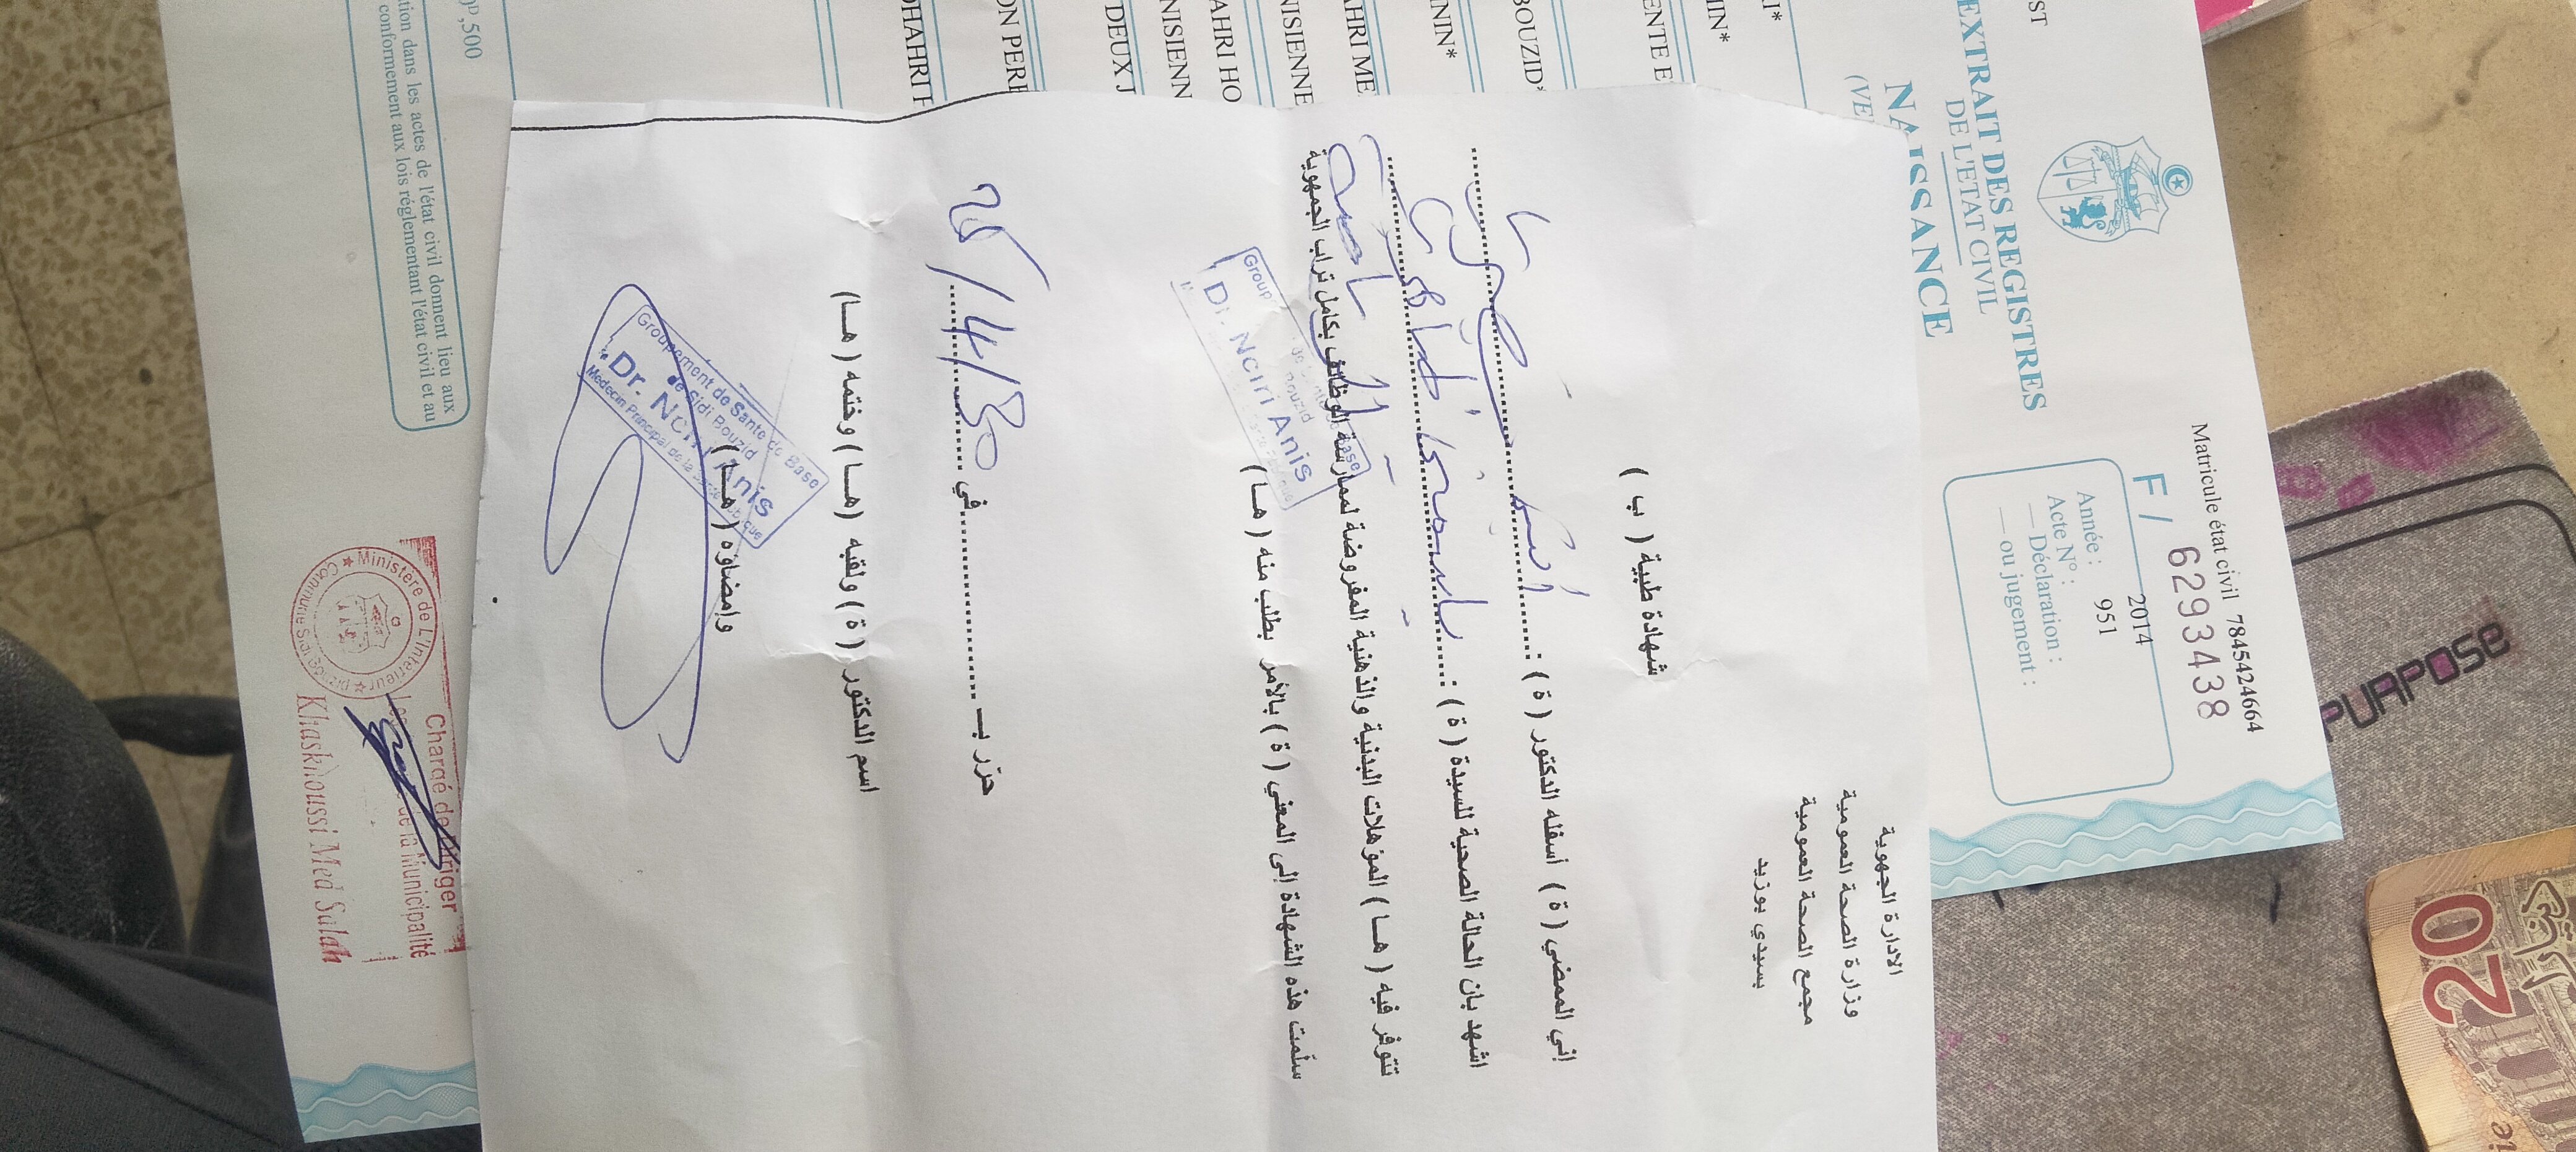 الادارة الجهوية
وزارة الصحة العمومية
مجمع الصحة العمومية
بسيدي بوزيد
شهادة طبية ( ب )
إني الممضي ( ة ) أسفله الدكتور ( ة ) :
اشهد بان الحالة الصحية للسيدة ( ة ) :
تتوفر فيه ( هـا ) المؤهلات البدنية والذهنية المفروضة لممارسة الوظائف بكامل تراب الجمهورية
سلمت هذه الشهادة إلى المعني ( ة ) بالأمر بطلب منه ( هـا )
Dr. Nciri Anis
حرّر بـ ............ في 30/4/25
اسم الدكتور ( ة ) ولقبه ( هـا ) وختمه ( هـا )
وإمضاؤه ( هـا )
Groupement de Santé de Base
de Sidi Bouzid
Dr. Nciri Anis
Médecin Principal de la Santé Publique
EXTRAIT DES REGISTRES
DE L'ETAT CIVIL
NAISSANCE
(VE
Matricule état civil 7845424664
F/ 6293438
2014
Année :
951
Acte N° :
— Déclaration :
— ou jugement :
ST
I*
MIN*
ENTE E
BOUZID*
NNN*
AHRI ME
NISIENNE
AHRI HO
NISIENN
DEUX J
ON PERE
DHAHRI F
,500
tion dans les actes de l'état civil donnent lieu aux
conformement aux lois réglementant l'état civil et au
Ministère de L'Interieur
Chargé de Diriger
de la Municipalité
Khaskhoussi Med Salah
PURPOSE
20